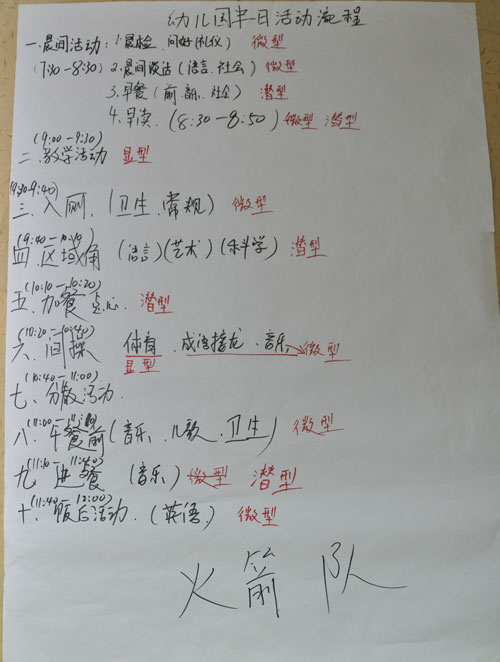 幼儿园半日活动流程
一.晨间活动: 1.晨检、问好(礼仪) 微型
(7:30-8:30) 2.晨间谈话(语言.社会) 微型
3.早餐(前.新.社会) 潜型
4.早读.(8:30-8:50) 微型 潜型
(9:00-9:30)
二.教学活动 显型
(9:30-9:40)
三、入厕、(卫生、常规) 微型
(9:40-10:10)
四.区域角 (语言)(艺术)(科学) 潜型
(10:10-10:20)
五.加餐 点心. 潜型
(10:20-10:40)
六、间操 体育、成语接龙、音乐. 微型
显型
(10:40-11:00)
七、分散活动.
(11:00-
八.午餐前(音乐、儿歌、卫生) 微型
(11:10 11:40)
九 进餐 (音乐) 微型 潜型
(11:40 12:00)
十、饭后活动.(英语.) 微型
火箭队